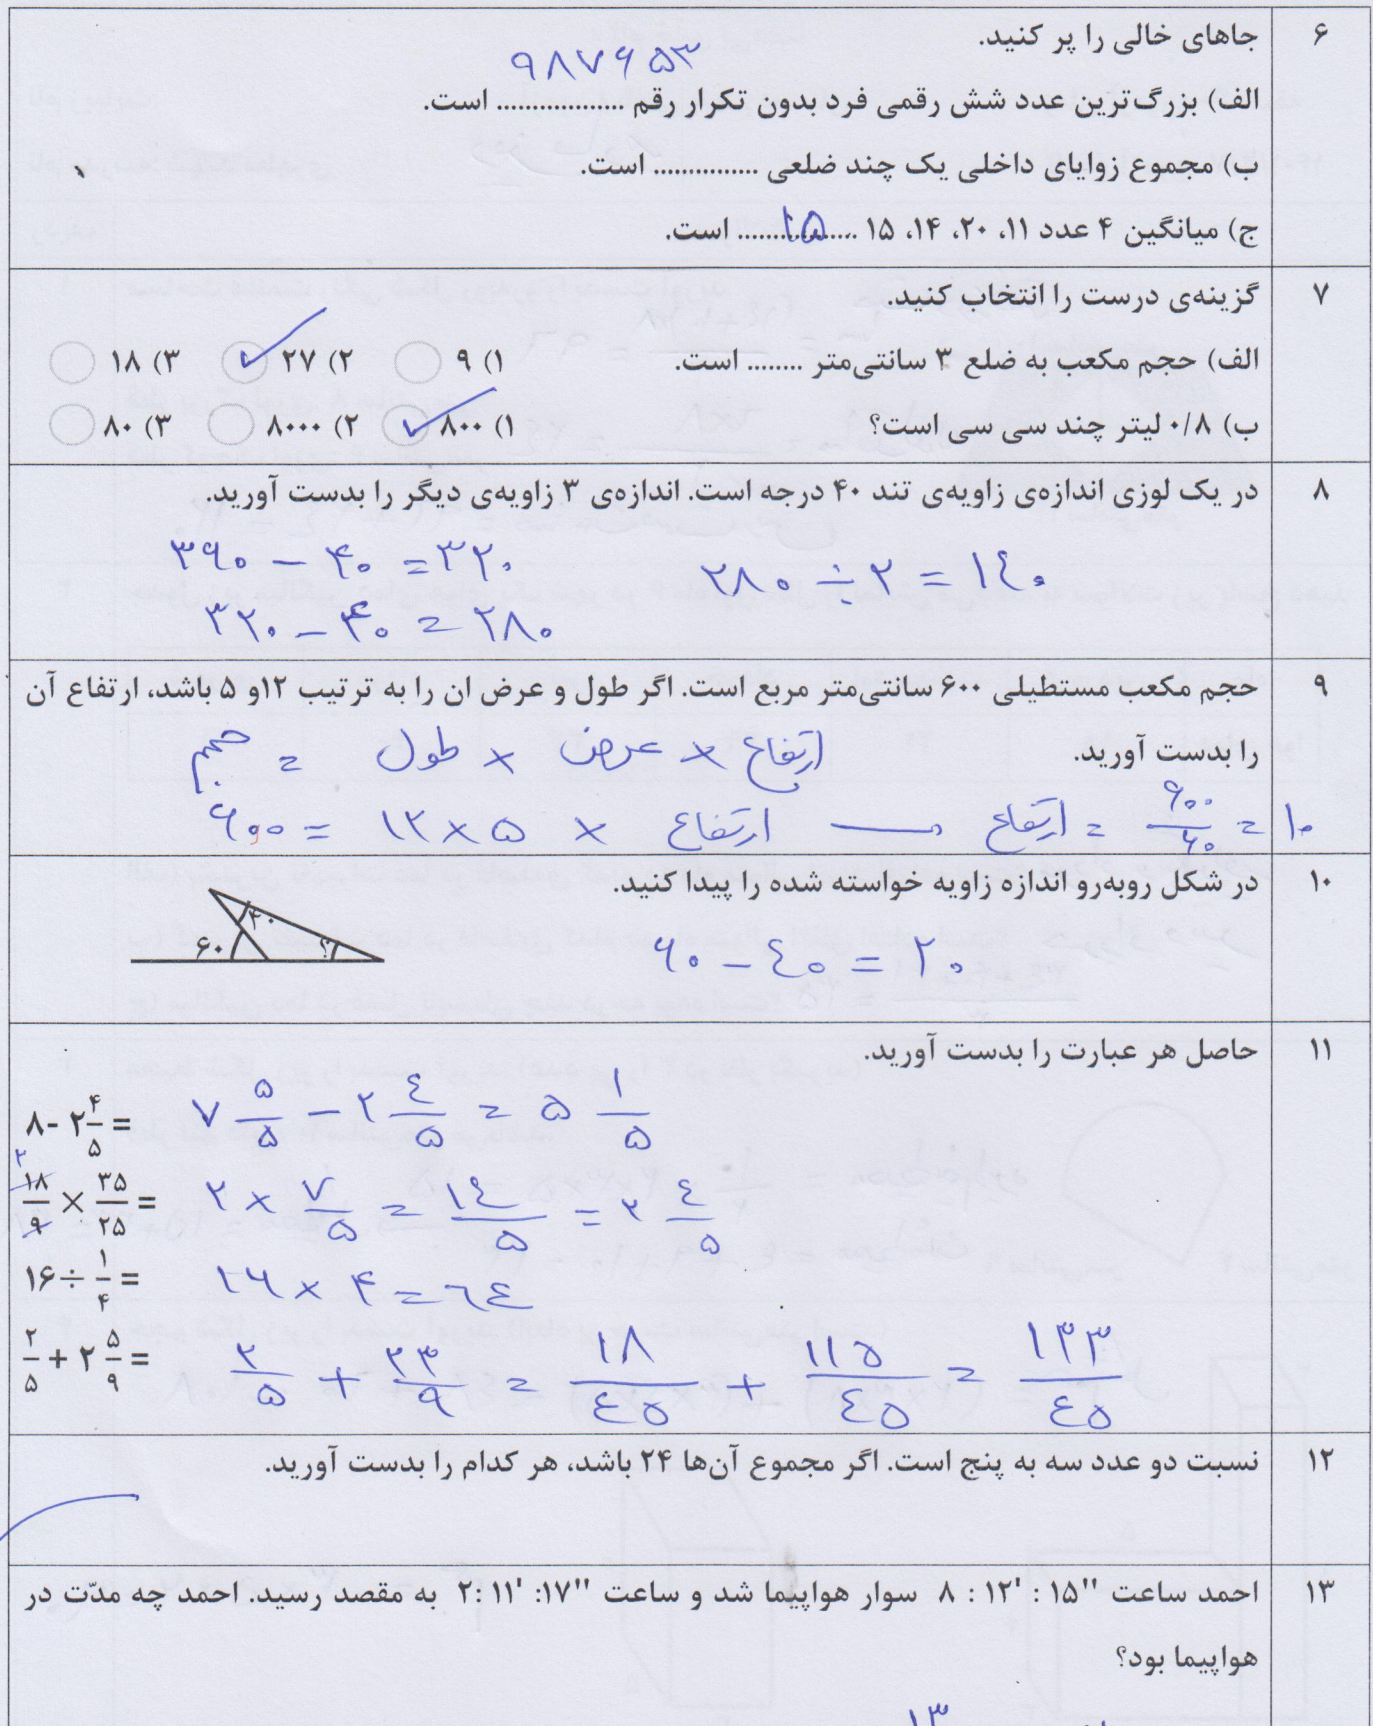 ۶ جاهای خالی را پر کنید.
۹۸۷۶۵۳
الف) بزرگ‌ترین عدد شش رقمی فرد بدون تکرار رقم .................. است.
ب) مجموع زوایای داخلی یک چند ضلعی ............... است.
ج) میانگین ۴ عدد ۱۱، ۲۰، ۱۴، ۱۵ ........۱۵........ است.
۷ گزینه‌ی درست را انتخاب کنید.
الف) حجم مکعب به ضلع ۳ سانتی‌متر ........ است. ۱) ۹ ۲) ۲۷ ✓ ۳) ۱۸
ب) ۰/۸ لیتر چند سی سی است؟ ۱) ۸۰۰ ✓ ۲) ۸۰۰۰ ۳) ۸۰
۸ در یک لوزی اندازه‌ی زاویه‌ی تند ۴۰ درجه است. اندازه‌ی ۳ زاویه‌ی دیگر را بدست آورید.
۳۶۰ − ۴۰ = ۳۲۰
۲۸۰ ÷ ۲ = ۱۴۰
۳۲۰ − ۴۰ = ۲۸۰
۹ حجم مکعب مستطیلی ۶۰۰ سانتی‌متر مربع است. اگر طول و عرض ان را به ترتیب ۱۲و ۵ باشد، ارتفاع آن
را بدست آورید.
حجم = طول × عرض × ارتفاع
۶۰۰ = ۱۲ × ۵ × ارتفاع → ارتفاع = ۶۰۰/۶۰ = ۱۰
۱۰ در شکل روبه‌رو اندازه زاویه خواسته شده را پیدا کنید.
۴۰
۶۰ ؟
۶۰ − ۴۰ = ۲۰
۱۱ حاصل هر عبارت را بدست آورید.
۸- ۲ ۴/۵ = ۷ ۵/۵ − ۲ ۴/۵ = ۵ ۱/۵
۲
۱۸/۹ × ۳۵/۲۵ = ۲ × ۷/۵ = ۱۴/۵ = ۲ ۴/۵
۱۶ ÷ ۱/۴ = ۱۶ × ۴ = ۶۴
۲/۵ + ۲ ۵/۹ = ۲/۵ + ۲۳/۹ = ۱۸/۴۵ + ۱۱۵/۴۵ = ۱۳۳/۴۵
۱۲ نسبت دو عدد سه به پنج است. اگر مجموع آن‌ها ۲۴ باشد، هر کدام را بدست آورید.
۱۳ احمد ساعت ''۱۵ : '۱۲ : ۸ سوار هواپیما شد و ساعت ''۱۷: '۱۱ :۲ به مقصد رسید. احمد چه مدّت در
هواپیما بود؟
۱۳